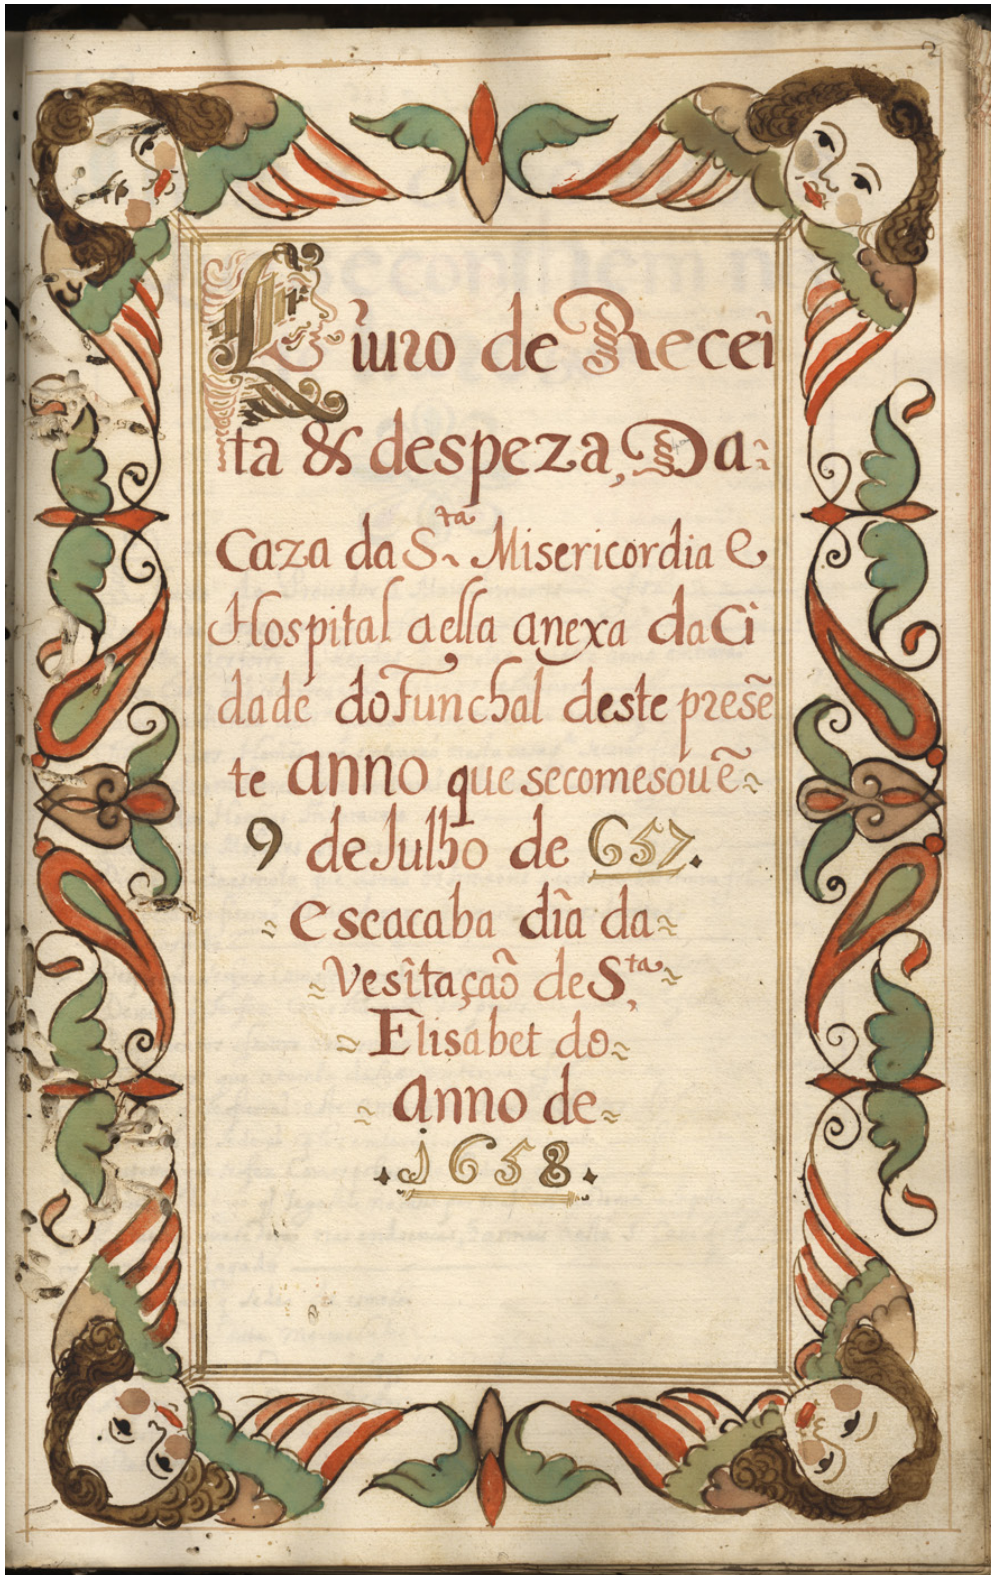 2
Liuro de Recei
ta & despeza, Da
Caza da S.ta Misericordia e
Hospital aella anexa daCi
dade doFunchal deste presẽ
te anno que secomesou ẽ
9 deJulho de 657.
eseacaba dia da
Vesitaçaõ de Sta
Elisabet do
anno de
.1658.